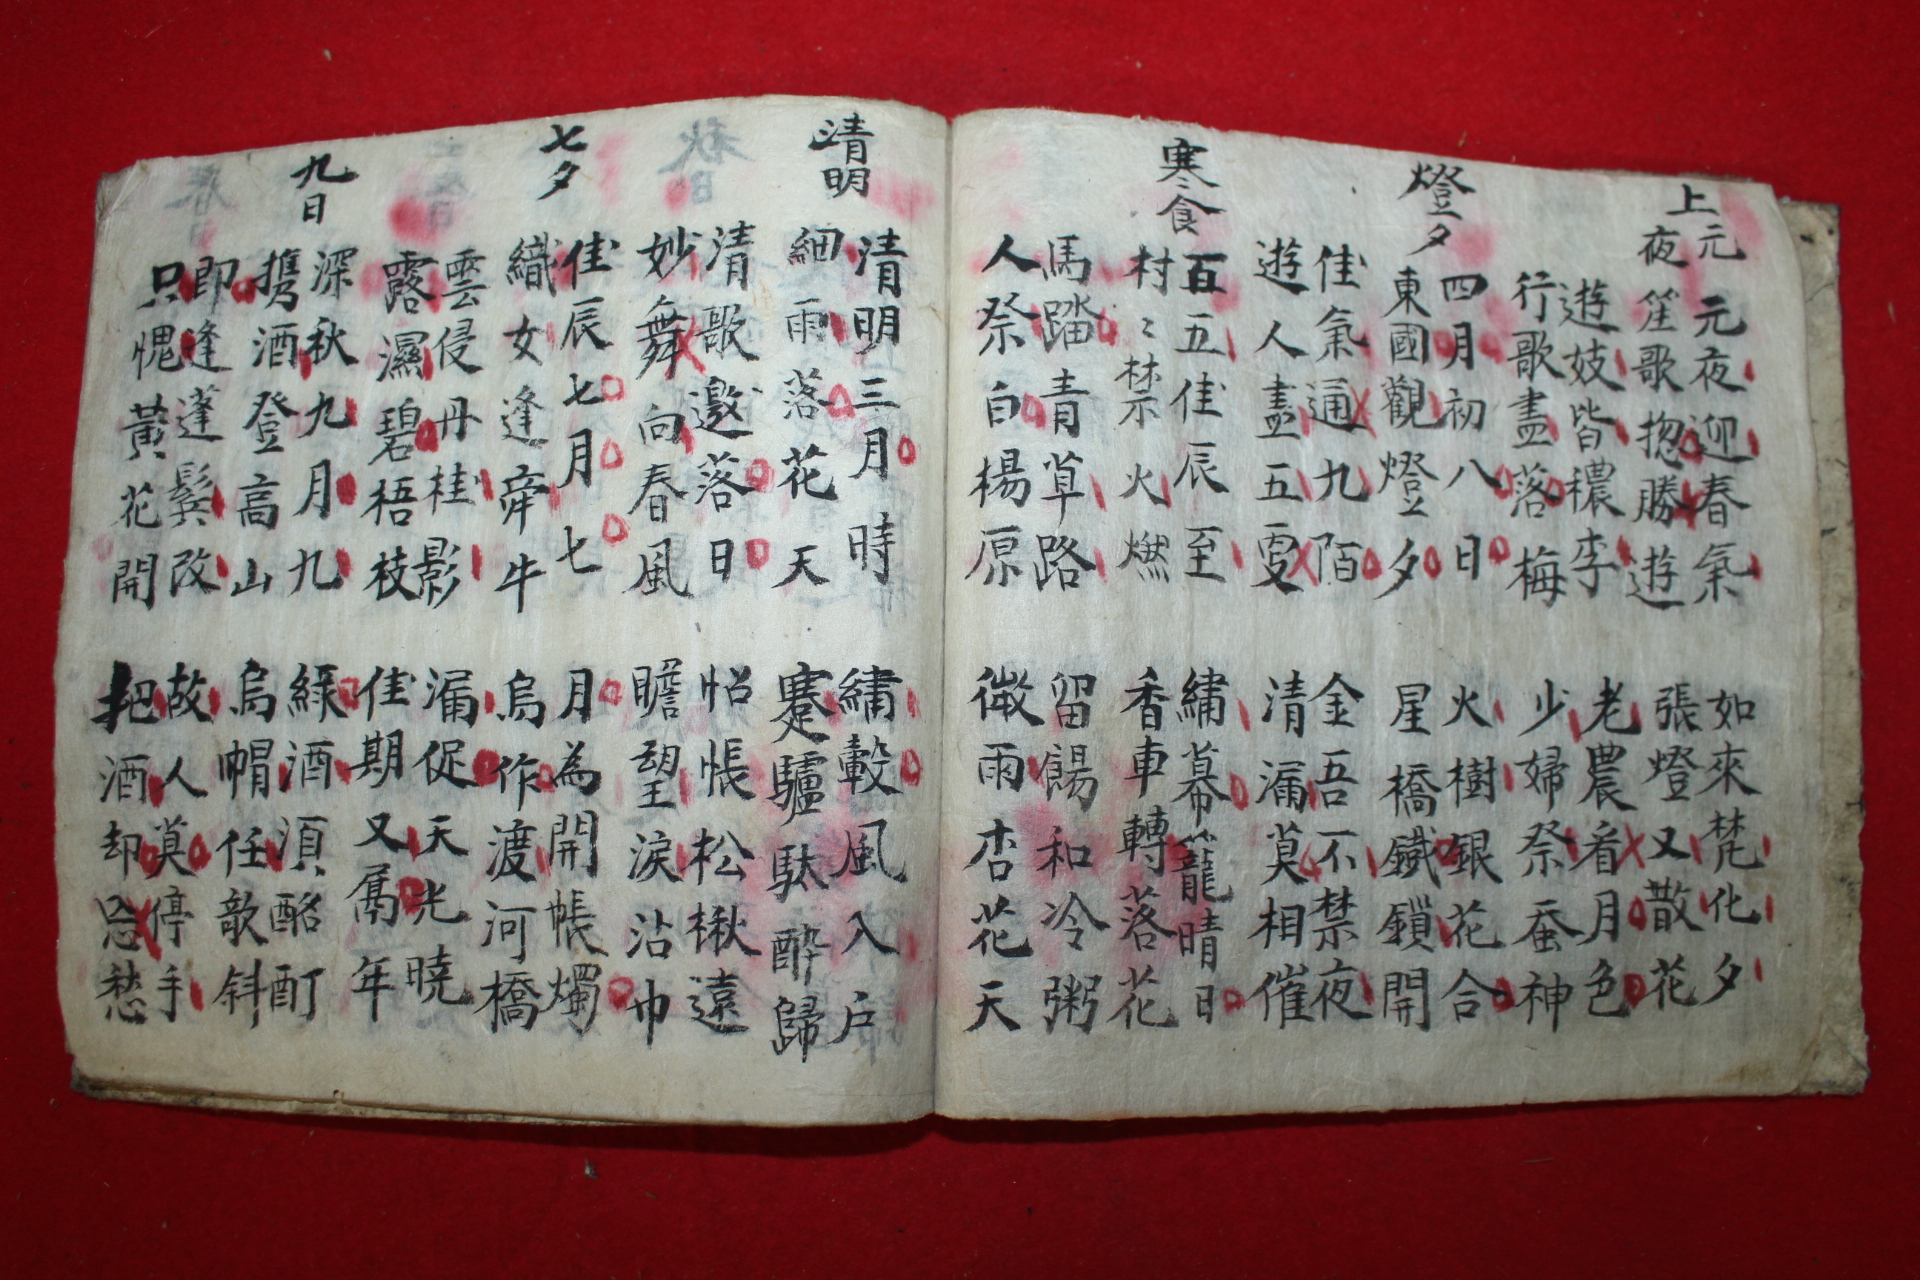 上元
元夜迎春氣 如來梵化夕
夜笙歌揔勝遊 張燈又散花
遊妓皆穠李 老農看月色
行歌盡落梅 少婦祭蚕神
燈夕
四月初八日 火樹銀花合
東國觀燈夕 星橋鐵鎖開
佳氣通九陌 金吾不禁夜
遊人盡五 清漏莫相催
寒食
百五佳辰至 繡幕籠晴日
村〻禁火燃 香車轉落花
馬踏青草路 留餳和冷粥
人祭白楊原 微雨杏花天
清明
清明三月時 繡轂風入户
細雨落花天 蹇驢馱醉歸
清歌邀落日 怊悵松楸遠
妙舞向春風 瞻望淚沾巾
七夕
佳辰七月七 月為開帳燭
織女逢牵牛 烏作渡河橋
雲侵丹桂影 漏促天光曉
露濕碧梧枝 佳期又屬年
九日
深秋九月九 綠酒須酩酊
携酒登高山 烏帽任欹斜
即逢蓬鬂改 故人莫停手
只愧黃花開 把酒却忘愁